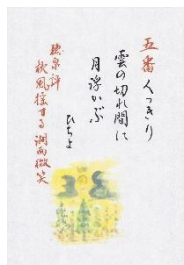 五番 くつきり
雲の切れ間に
月浮かぶ
ひちよ
秋風揺する湖面微笑